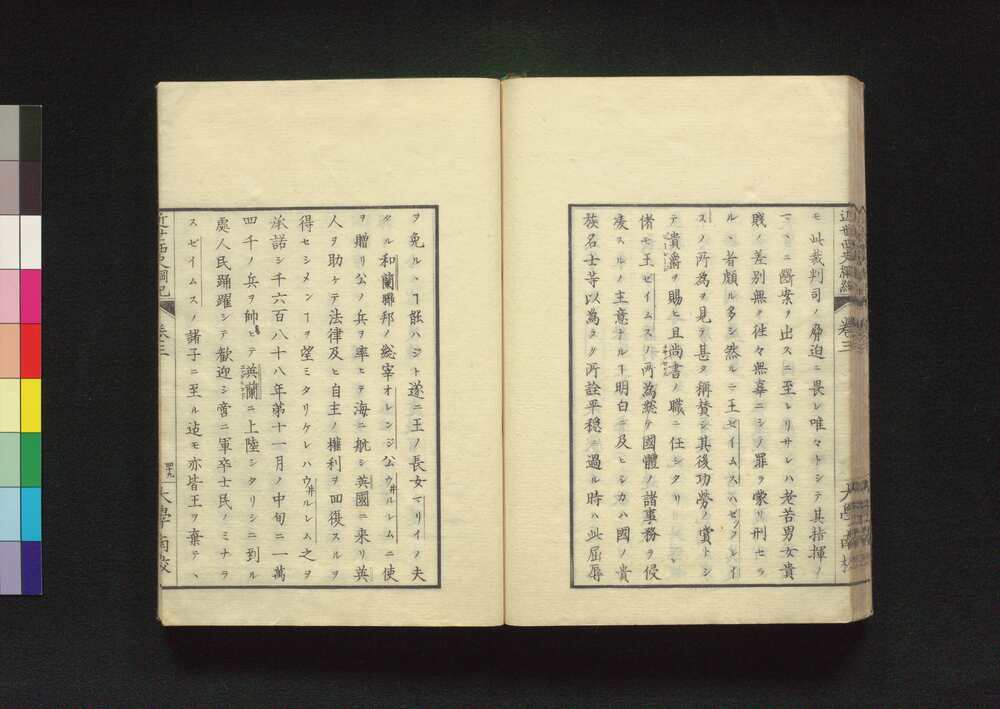 モ此裁判司ノ脅迫ニ畏レ唯々トシテ其指揮ノ
マヽニ斷案ヲ出スニ至レリサレハ老若男女貴
賤ノ差別無ク徃々無辜ニシテ罪ヲ蒙リ刑セラ
ルヽ者頗ル多シ然ルニ王ゼイムスハゼッフレイ
スノ所為ヲ見テ甚タ稱賛シ其後功勞ノ賞トシ
テ貴爵ヲ賜ヒ且尚書ノ職ニ任シタリ
偖モ王ゼイムスノ所為総ケ國體ノ諸事務ヲ侵
凌スルノ主意ナルヿ明白ニ及ヒシカハ國ノ貴
族名士等以為ラク所詮平穏ニ過ル時ハ此屈辱
近世西史綱紀 卷三 大學南校
ヲ免ルヽヿ能ハジト遂ニ王ノ長女マリイノ夫
タル和蘭聯邦ノ総宰オレンジ公ウ井ルレムニ使
ヲ贈リ公ノ兵ヲ率ヒテ海ニ航シ英國ニ来リ英
人ヲ助ケテ法律及ヒ自主ノ權利ヲ回復スルヲ
得セシメンヿヲ望ミタリケレハウ井ルレム之ヲ
承諾シ千六百八十八年第十一月ノ中旬ニ一萬
四千ノ兵ヲ帥ヒテ英蘭ニ上陸シタリシニ到ル
處人民踊躍シテ歓迎シ啻ニ軍卒士民ノミナラ
スゼイムスノ諸子ニ至ル迠モ亦皆王ヲ棄テヽ
近世西史綱紀 卷三 四十九 大學南校